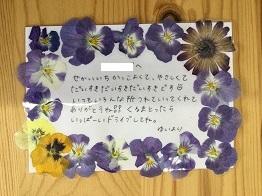 へ
せかいいちかっこよくて、やさしくて
だいすきだいすきだいすきです
いつもいろんな所つれていってくれて
ありがとうね!! くるまとったら
いっぱーいドライブしてね。
ゆいより